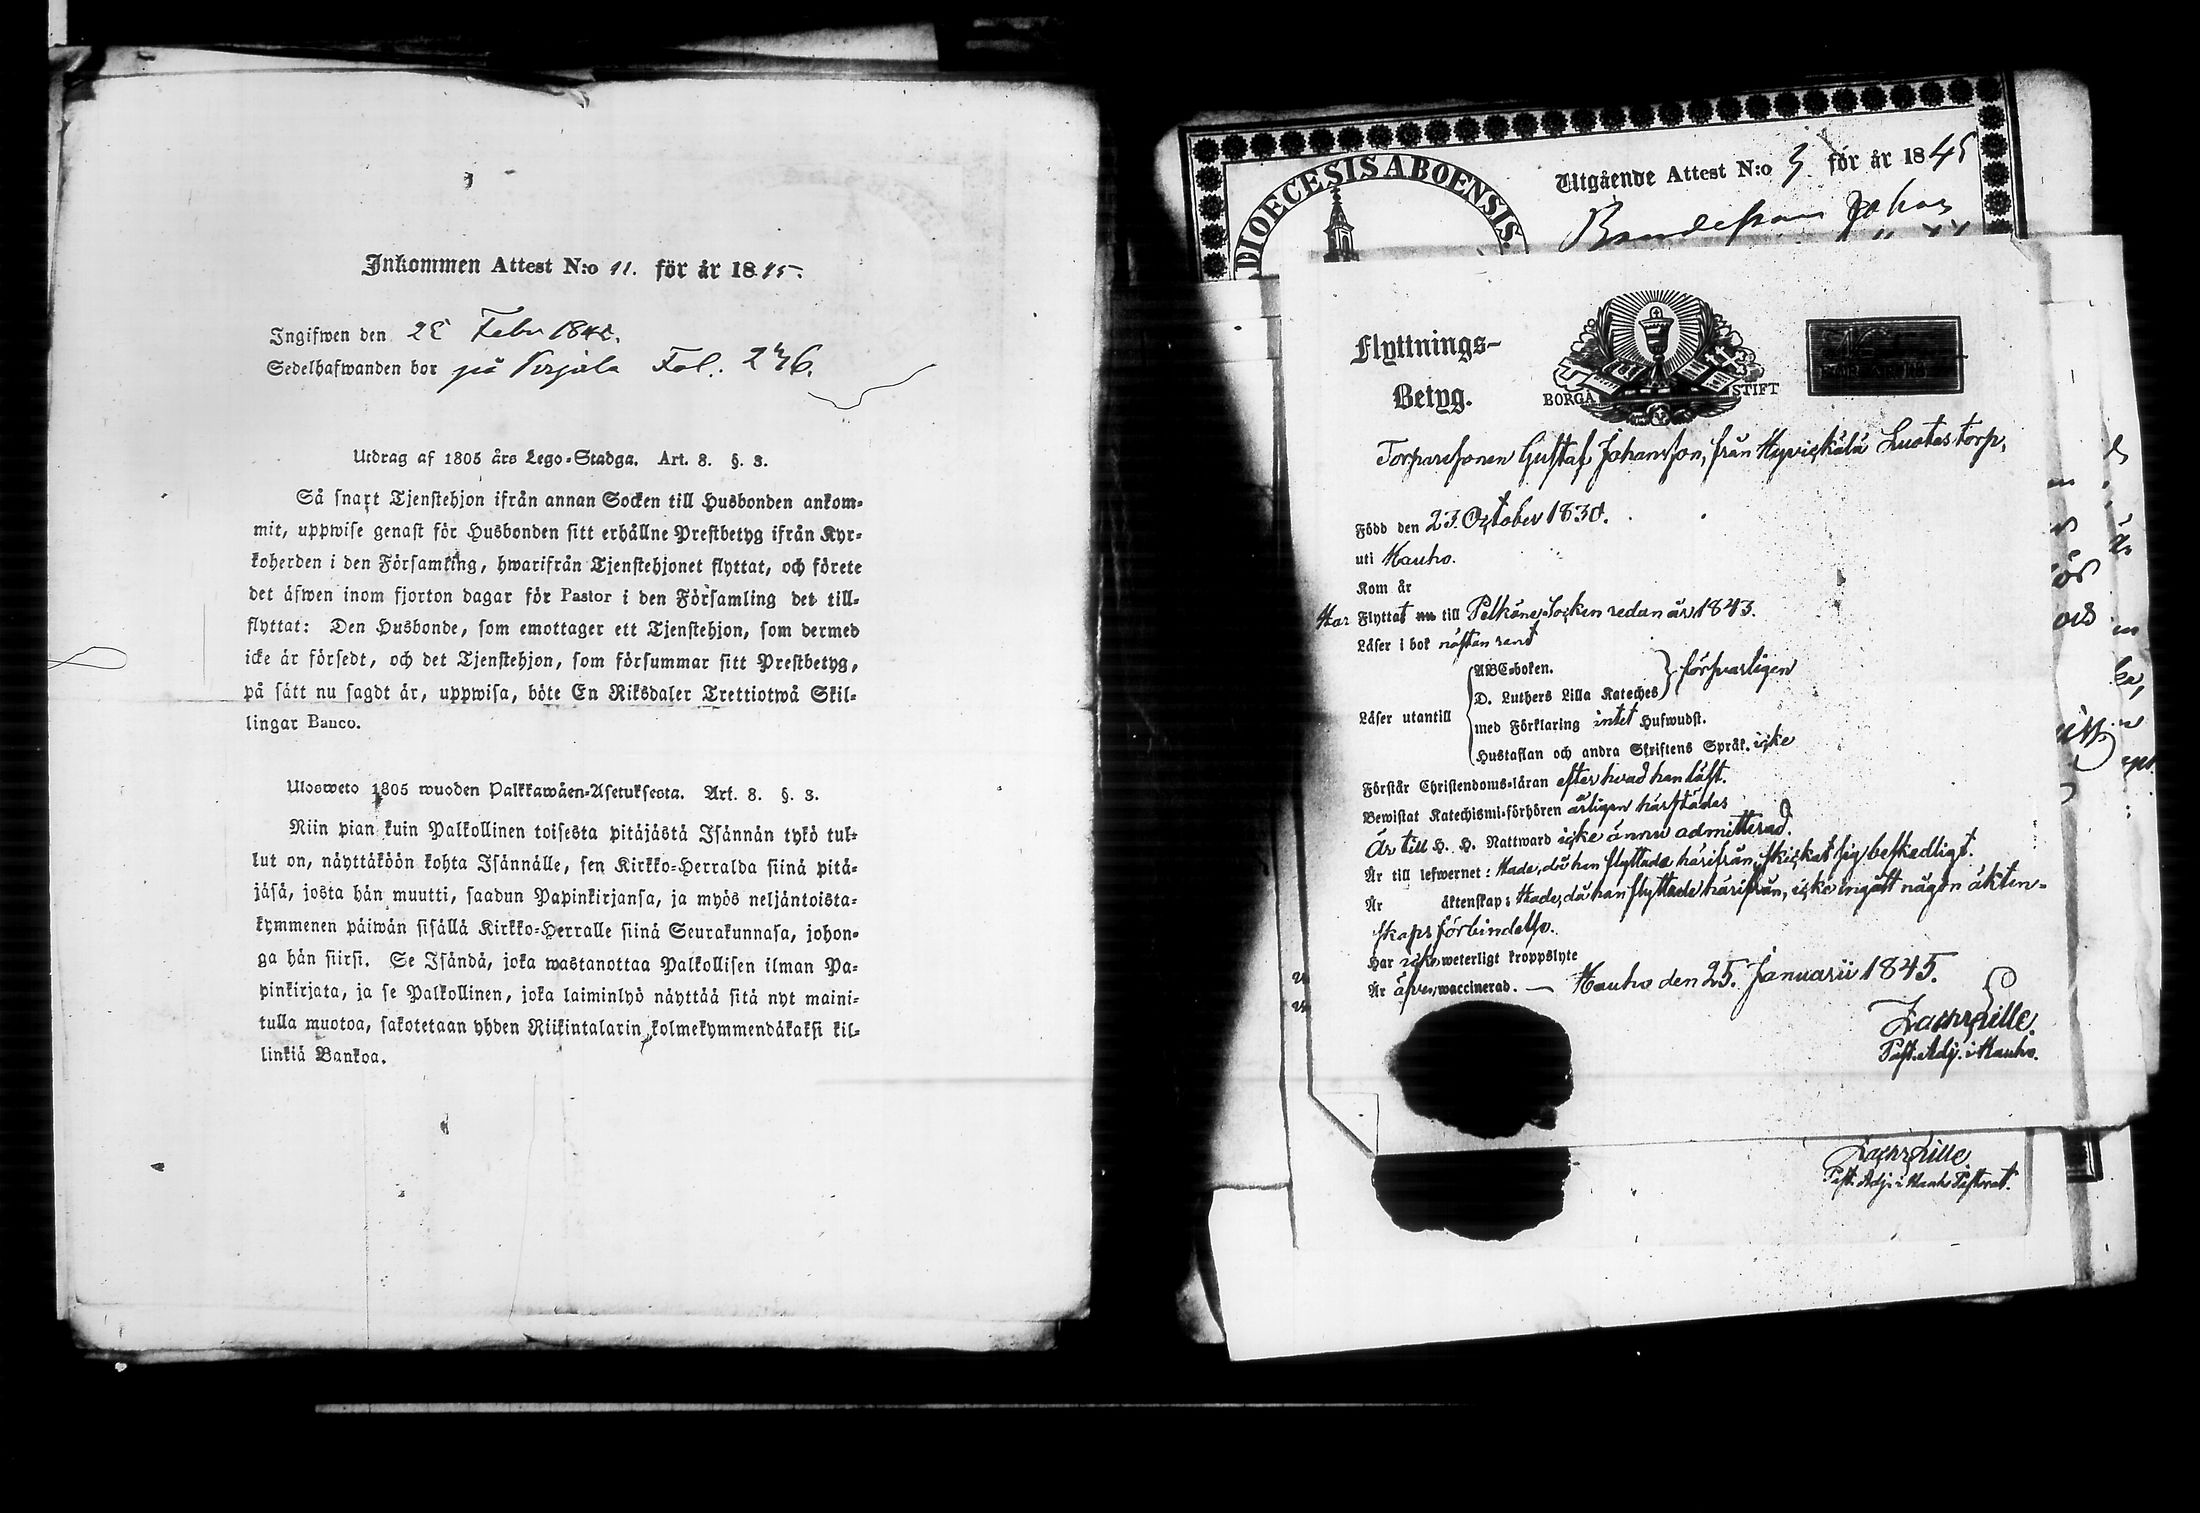 Inkommen Attest N:o 11. för år 1845.
Ingifwen den Febr
Sedelhafwanden bor på Fol. 236.
Utdrag af 1805 års Lego-Stadga. Art. 8. §. 3.
Så snart Tjenstehjon ifrån annan Socken till Husbonden ankom-
mit, uppwise genast för Husbonden sitt erhållne Prestbetyg ifrån Kyr-
koherden i den Församling, hwarifrån Tjenstehjonet flyttat, och förete
det äfwen inom fjorton dagar för Pastor i den Församling det till-
flyttat: Den Husbonde, som emottager ett Tjenstehjon, som dermed
icke är försedt, och det Tjenstehjon, som försummar sitt Prestbetyg,
på sätt nu sagdt är, uppwisa, böte En Riksdaler Trettiotwå Skil-
lingar Banco.
Ulosweto 1805 wuoden Palkkawäen-Asetuksesta. Art. 8. §. 3.
Niin pian kuin Palkollinen toisesta pitäjästä Isännän tykö tul-
lut on, näyttäköön kohta Isännälle, sen Kirkko-Herralda siinä pitä-
jäsä, josta hän muutti, saadun Papinkirjansa, ja myös neljäntoista-
kymmenen päiwän sisällä Kirkko-Herralle siinä Seurakunnasa, johon-
ga hän siirsi. Se Isändä, joka wastanottaa Palkollisen ilman Pa-
pinkirjata, ja se Palkollinen, joka laiminlyö näyttää sitä nyt maini-
tulla muotoa, sakotetaan yhden Riikintalarin kolmekymmendäkaksi kil-
linkiä Bankoa.
DIOECESIS ABOENSIS.
Utgående Attest N:o 3 för år 1845
Johan
Flyttnings-
Betyg.
BORGÅ STIFT
Torparesonen Gustaf Johansson, från Hyvickälä Luotas torp,
Född den 23. October 1830.
uti Hauho.
Kom år
Har Flyttat nu till Pelkäne Socken redan år 1843.
Läser i bok nästan rent
ABC-boken.
D. Luthers Lilla Kateches } försvarligen
Läser utantill
med Förklaring intet Hufwudst.
Hustaflan och andra Skriftens Språk. icke
Förstår Christendoms-läran efter hvad han läst.
Bewistat Katechismi-förhören årligen härstädes
Är till H. H. Nattward icke ännu admitterad.
Är till lefwernet: Hade, då han flyttade härifrån, skickat sig beskedligt.
Är äktenskap: Hade, då han flyttade härifrån, icke ingått någon äkten-
skapsförbindelse.
Har icke weterligt kroppslyte
Är äfven waccinerad. — Hauho den 25. Januarii 1845.
Zachr Lille.
Past. Adj. i Hauho.
Zachr Lille
Past. Adj. i Hauho Pastorat.